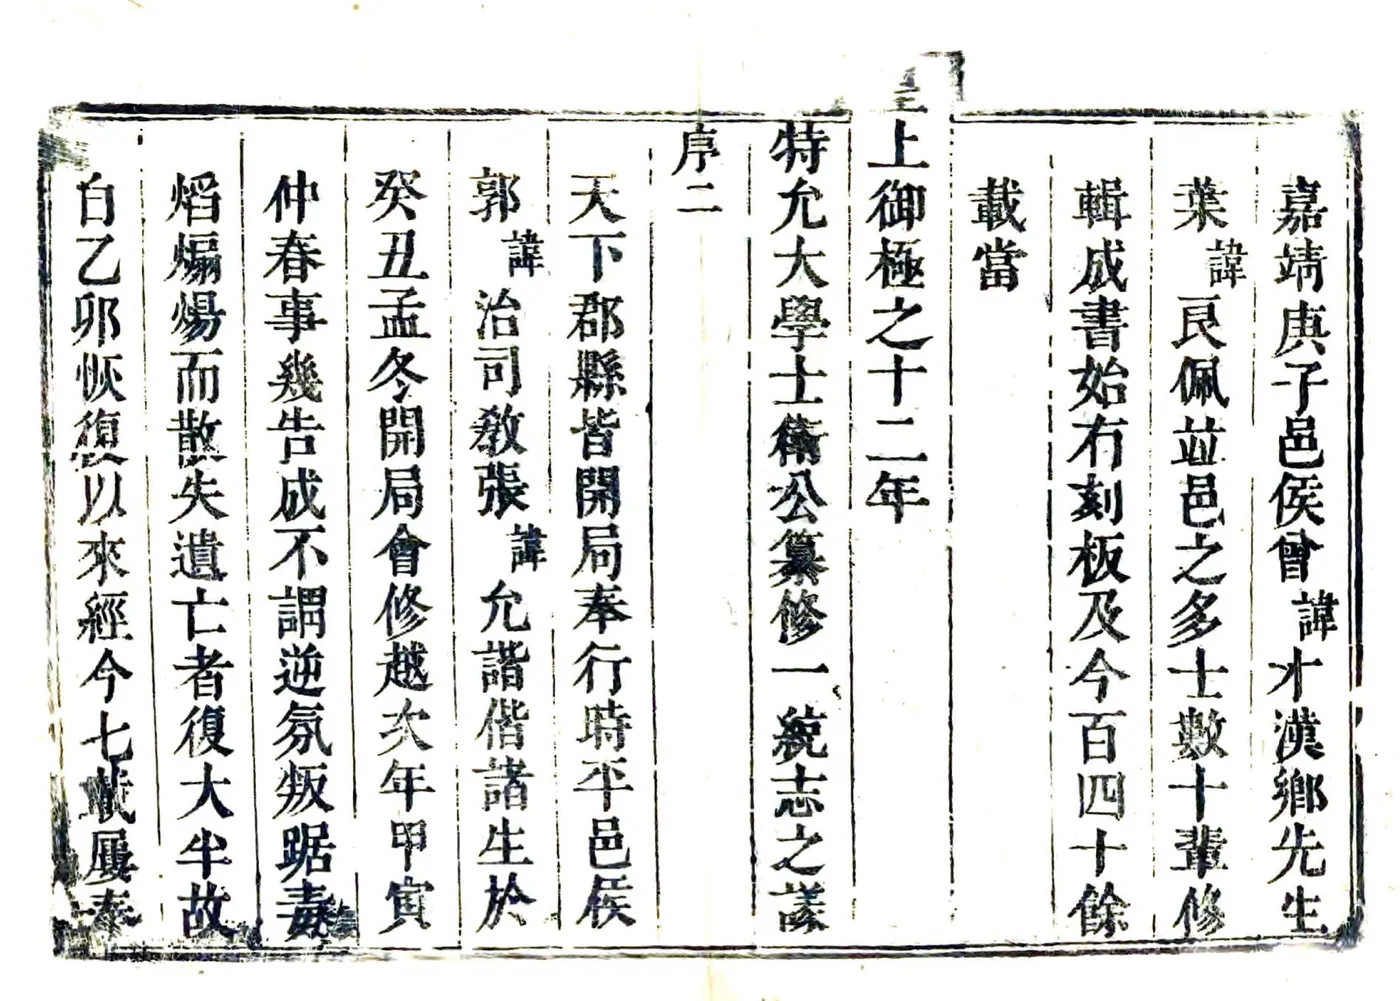 嘉靖庚子邑侯曾諱才漢鄉先生
葉諱良佩並邑之多士數十輩修
輯成書始有刻板及今百四十餘
載當
皇上御極之十二年
特允大學士衛公纂修一統志之議
序二
天下郡縣皆開局奉行時平邑侯
郭諱治司教張諱允諧偕諸生於
癸丑孟冬開局會修越次年甲寅
仲春事幾告成不謂逆氛叛踞毒
熖煽煬而散失遺亡者復大半故
自乙卯恢復以來經今七載屢奉